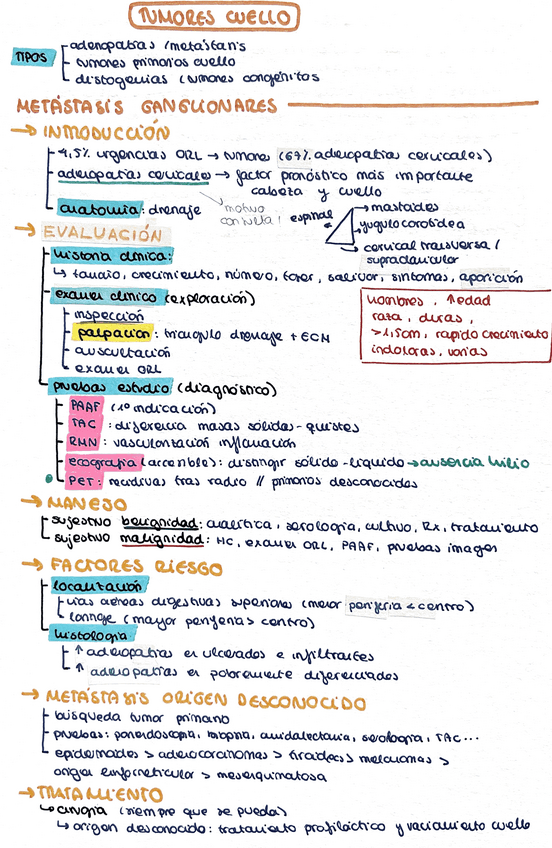 TUMORES CUELLO
TIPOS
adenopatías / metástasis
tumores primarios cuello
distogenias (tumores congénitos
METÁSTASIS GANGLIONARES
→ INTRODUCCIÓN
4,5% urgencias ORL → tumores (67% adenopatías cervicales)
adenopatías cervicales → factor pronóstico más importante
cabeza y cuello
anatomía: drenaje
motivo
consulta!
espinal
→ mastoides
→ yugulocarotídea
→ cervical transversa /
supraclavicular
→ EVALUACIÓN
historia clínica:
↳ tamaño, crecimiento, número, fonar, salivar, síntomas, aparición
examen clínico (exploración)
inspección
palpación: triángulo drenaje + ECM
auscultación
examen ORL
hombres, ↑edad
raza, duras,
>1,5cm, rapido crecimiento
indoloras, varias
pruebas estudio (diagnóstico)
PAAF (1º indicación)
TAC: diferencia masas sólidas - quistes
RMN: vascularización inflamación
ecografía (accesible): distinguir sólido - líquido → ausencia hilio
PET: recidivas tras radio // primarios desconocidos
→ MANEJO
sujestivo benignidad: analítica, serología, cultivo, Rx, tratamiento
sujestivo malignidad: HC, examen ORL, PAAF, pruebas imagen
→ FACTORES RIESGO
localización
vías aéreas digestivas superiores (menor periferia < centro)
laringe (mayor periferias centro)
histología
↑ adenopatías en ulcerados e infiltrantes
↑ adenopatías en pobremente diferenciados
→ METÁSTASIS ORIGEN DESCONOCIDO
búsqueda tumor primario
pruebas: panendoscopia, biopsia, amidalectomía, serología, TAC...
epidermoides > adenocarcinomas > tiroideos melanomas >
origen linforreticular > mesenquimatosa
→ TRATAMIENTO
↳ cirugía (siempre que se pueda)
↳ origen desconocido: tratamiento profiláctico y vaciamiento cuello